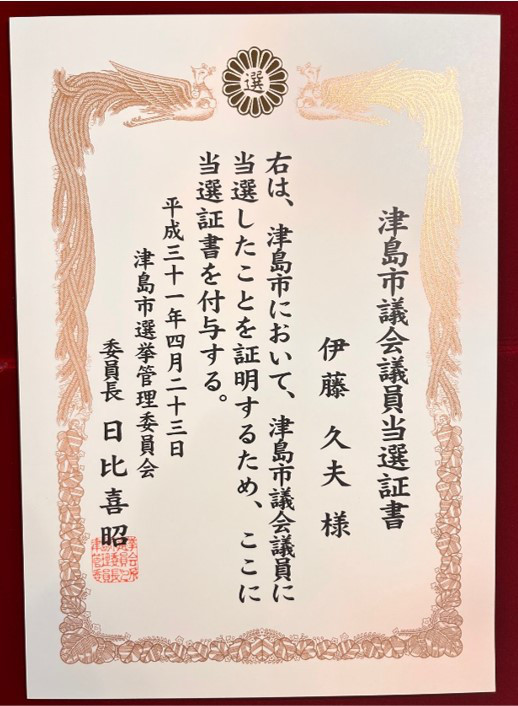 選
津島市議会議員当選証書
伊藤久夫様
右は、津島市において、津島市議会議員に
当選したことを証明するため、ここに
当選証書を付与する。
平成三十一年四月二十三日
津島市選挙管理委員会
委員長 日比喜昭